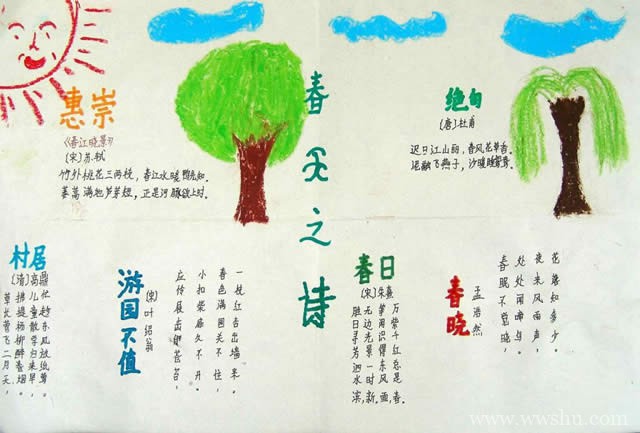 春天之诗
惠崇
《春江晓景》
〔宋〕苏轼
竹外桃花三两枝，春江水暖鸭先知。
蒌蒿满地芦芽短，正是河豚欲上时。
绝句
〔唐〕杜甫
迟日江山丽，春风花草香。
泥融飞燕子，沙暖睡鸳鸯。
村居
〔清〕高鼎
草长莺飞二月天，
拂堤杨柳醉春烟。
儿童散学归来早，
忙趁东风放纸鸢。
游园不值
〔宋〕叶绍翁
应怜屐齿印苍苔，
小扣柴扉久不开。
春色满园关不住，
一枝红杏出墙来。
春日
〔宋〕朱熹
胜日寻芳泗水滨，
无边光景一时新。
等闲识得东风面，
万紫千红总是春。
春晓
孟浩然
春眠不觉晓，
处处闻啼鸟。
夜来风雨声，
花落知多少。
www.wwshu.com